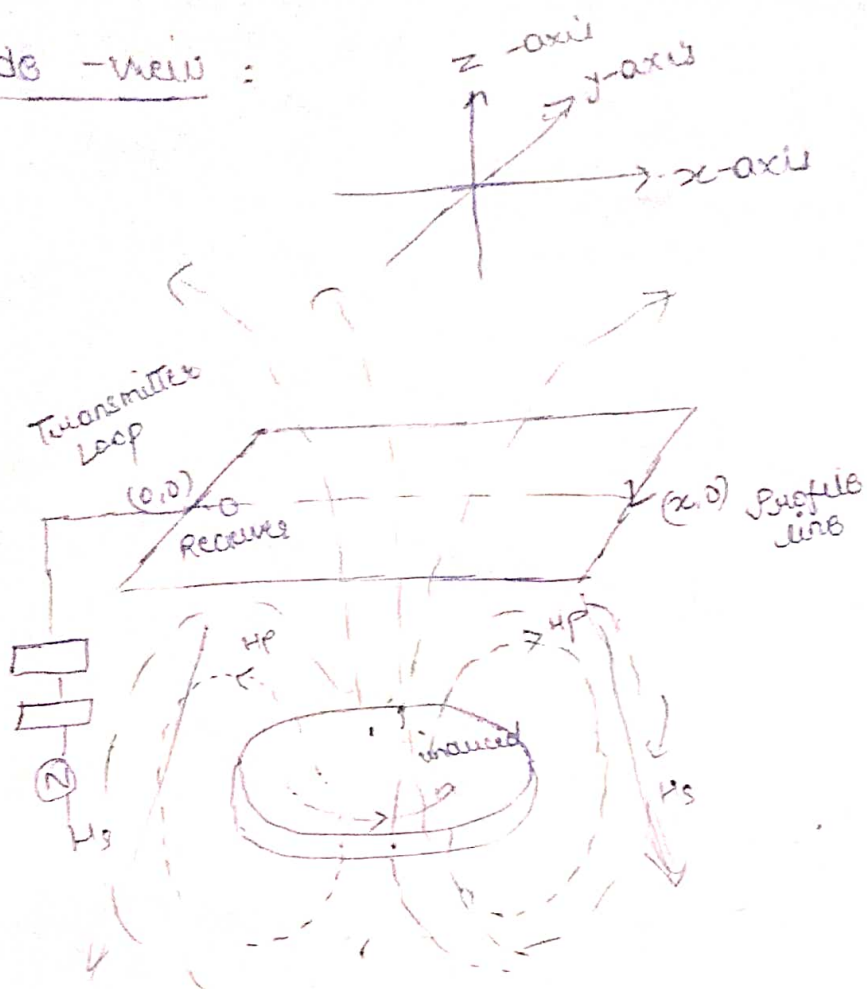 de - view :
z - axis
y-axis
x-axis
Transmitter
Loop
(0,0)
Receiver
(x,0) Profile
line
Hp
Hp
induced
Hs
Hs